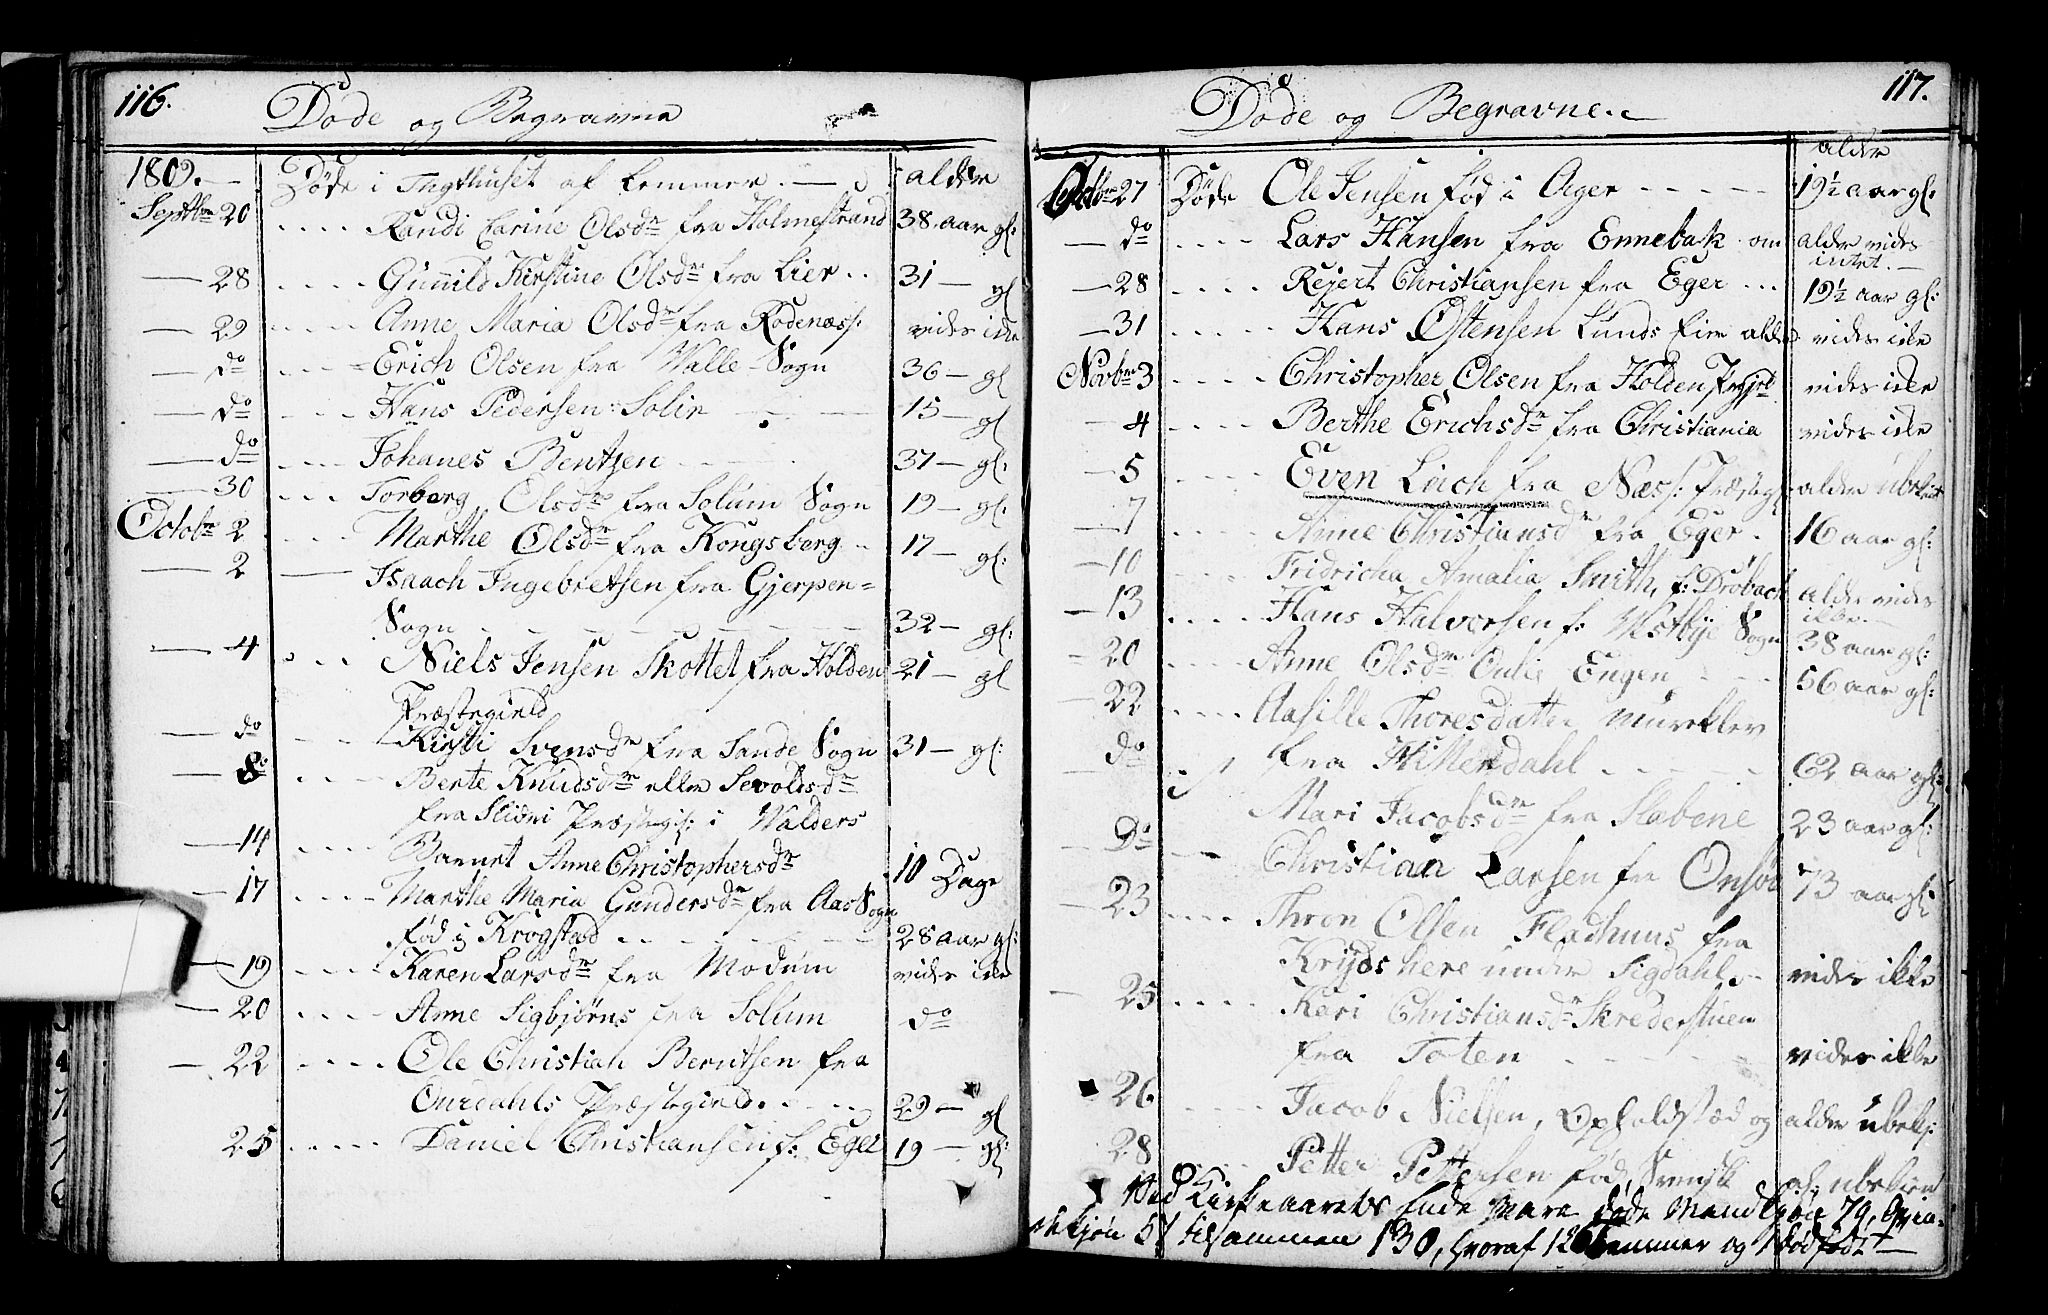 116.
Døde og Begravne
1809. Døde i Tugthuset af Lemmer. alder
Septbr 20 Randi Carine Olsdr fra Holmestrand 38 aar gl:
28 Gunild Kirstine Olsdr fra Lier 31 gl
29 Anne Maria Olsdr fra Rodenæss: vides ikke
do Erich Olsen fra Walle Sogn 36 gl
do Hans Pedersen Solie 15 gl
do Johanes Bentzen 37 gl:
30 Torberg Olsdr fra Solum Sogn 19 gl:
Octobr 2 Marthe Olsdr fra Kongsberg 17 gl:
2 Isaach Ingebretsen fra Gjerpen=
Sogn 32 gl:
4 Niels Jensen Skottet fra Holden 21 gl
Præstegield
do Kirsti Svensdr fra Sande Sogn 31 gl:
8 Berte Knudsdr eller Sevoldsdr
fra Slidri Præstegl: i Walders
14 Barnet Anne Christophersdr 10 Dage
17 Marthe Maria Gundersdr fra Aas Sogn
fød i Krogstad 28 aar gl:
19 Karen Larsdr fra Modum vides ikke
20 Anne Sigbjørns fra Solum do
22 Ole Christian Berntsen fra
Ourdahls Præstegield. 29 gl
25 Daniel Christiansen f: Eger 19 gl:
117.
Døde og Begravne.
alder
Octbr 27 Døde Ole Jensen fød i Ager 19½ aar gl:
do Lars Hansen fra Ennebak om alder vides
intet.
28 Rejert Christiansen fra Eger 19½ aar gl:
31 Hans Østensen Lunds Eier alder vides ikke
Novbr 3 Christopher Olsen fra Holden Prgjeld vides ikke
4 Berthe Erichsdr fra Christiania vides ikke
5 Even Leich fra Næss: Præstegl: alder ubekient
7 Anne Christiansdr fra Eger. 16 aar gl:
10 Fridricha Amalia Smith, f: Drøbach alder vides
ikke.
13 Hans Halvorsen f: Westbye Sogn 38 aar gl:
20 Anne Olsdr Oulie Engen 56 aar gl:
22 Aasille Thoresdatter
fra Hittendahl 62 aar gl:
do Mari Jacobsdr fra Skabene 23 aar gl:
Do Christian Larsen fra Onsøe 73 aar gl:
23 Thron Olsen Fladhuus fra
Krydshere under Sigdahl vides ikke
25 Kari Christiansdr Skrederstuen
fra Toten vides ikke
26 Jacob Nielsen, Opholdstæd og alder ubek:
28 Petter Pettersen fød, Svensk al: ubekien
Ved Kirkeaarets Ende Vare døde Mandkiøn 79, Qvin-
dekjøn 51 tilsammen 130, hvoraf 126 Lemmer og 1 dødfødt